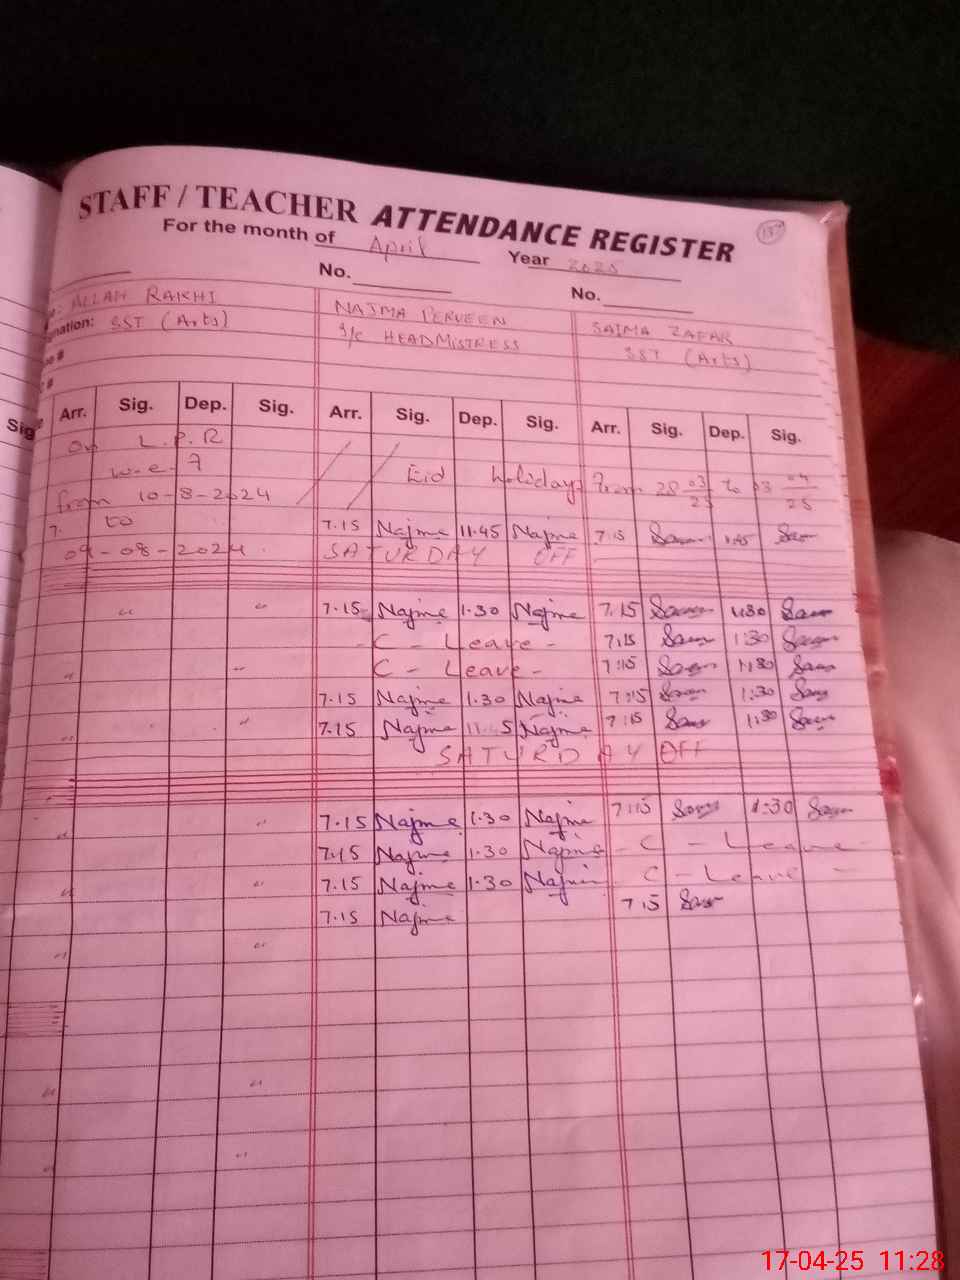 STAFF / TEACHER ATTENDANCE REGISTER
For the month of April Year 2025
No. No.
ALLAH RAKHI NAJMA PERVEEN SAIMA ZAFAR
nation: SST (Arts) I/c HEADMISTRESS SST (Arts)
Sig Arr. Sig. Dep. Sig. Arr. Sig. Dep. Sig. Arr. Sig. Dep. Sig.
On L.P.R
w.e.f Eid holidays From 28 03/25 to 03 04/25
from 10-8-2024
to 7.15 Najme 11.45 Najme 7.15
09-08-2024 SATURDAY OFF
7.15 Najme 1.30 Najme 7.15 1.30
- C - Leave - 7:15 1:30
C - Leave - 7:15 1:30
7.15 Najme 1.30 Najme 7:15 1:30
7.15 Najme 11.45 Najme 7:15 11:30
SATURDAY OFF
7.15 Najme 1.30 Najme 7:15 1:30
7.15 Najme 1.30 Najme - C - Leave -
7.15 Najme 1.30 C - Leave -
7.15 Najme 7 15
17-04-25 11:28